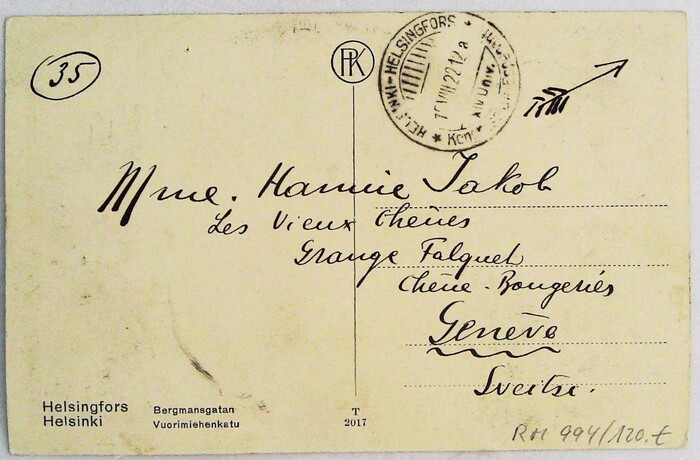 35
PK
HELSINKI-HELSINGFORS
VIII 22-12 a
XIV Univ.
Mme. Hannie Jakob
Les Vieux Chênes
Grange Falquet
Chêne-Bougeriés
Genève
Sveitsi.
Helsingfors Bergmansgatan
Helsinki Vuorimiehenkatu
T
2017
RM 994/120.t